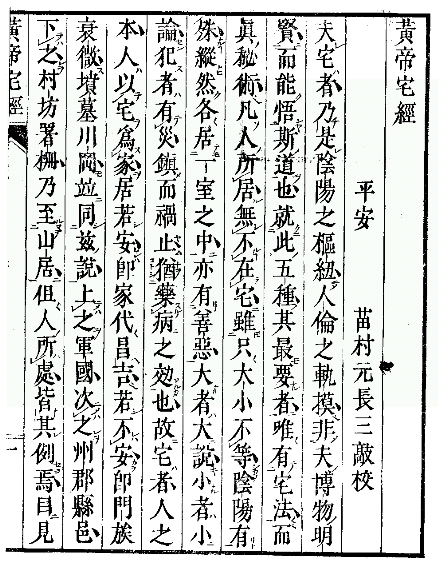 黃帝宅經
平安　苗村元長三敲校
夫宅者乃是陰陽之樞紐人倫之軌摸非夫博物明
賢而能悟斯道也就此五種其最要者唯有宅法而
眞秘術凡人所居無不在宅雖只大小不等陰陽有
殊縱然各居一室之中亦有善惡大者大說小者小
論犯者有災鎮而禍止猶藥病之効也故宅者人之
本人以宅爲家居若安卽家代昌吉若不安卽門族
衰微墳墓川岡竝同茲說上之軍國次之州郡縣邑
下之村坊署柵乃至山居但人所處皆其例焉目見
黃帝宅經
一